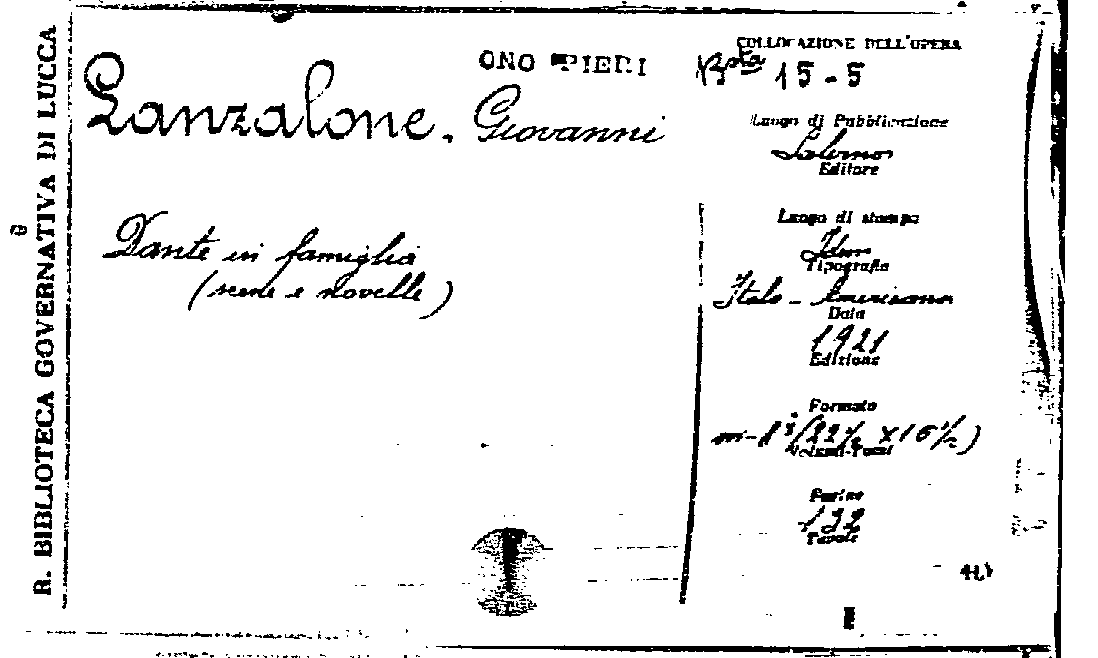 R. BIBLIOTECA GOVERNATIVA DI LUCCA
ONO PIERI
Lanzalone, Giovanni
Dante in famiglia
(scene e novelle)
COLLOCAZIONE DELL'OPERA
Bta 15-5
Luogo di Pubblicazione
Salerno
Editore
Luogo di stampa
Idem
Tipografia
Italo-Americana
Data
1921
Edizione
Formato
in-8° (22½ X 16½)
Volumi-Tomi
Pagine
122
Tavole